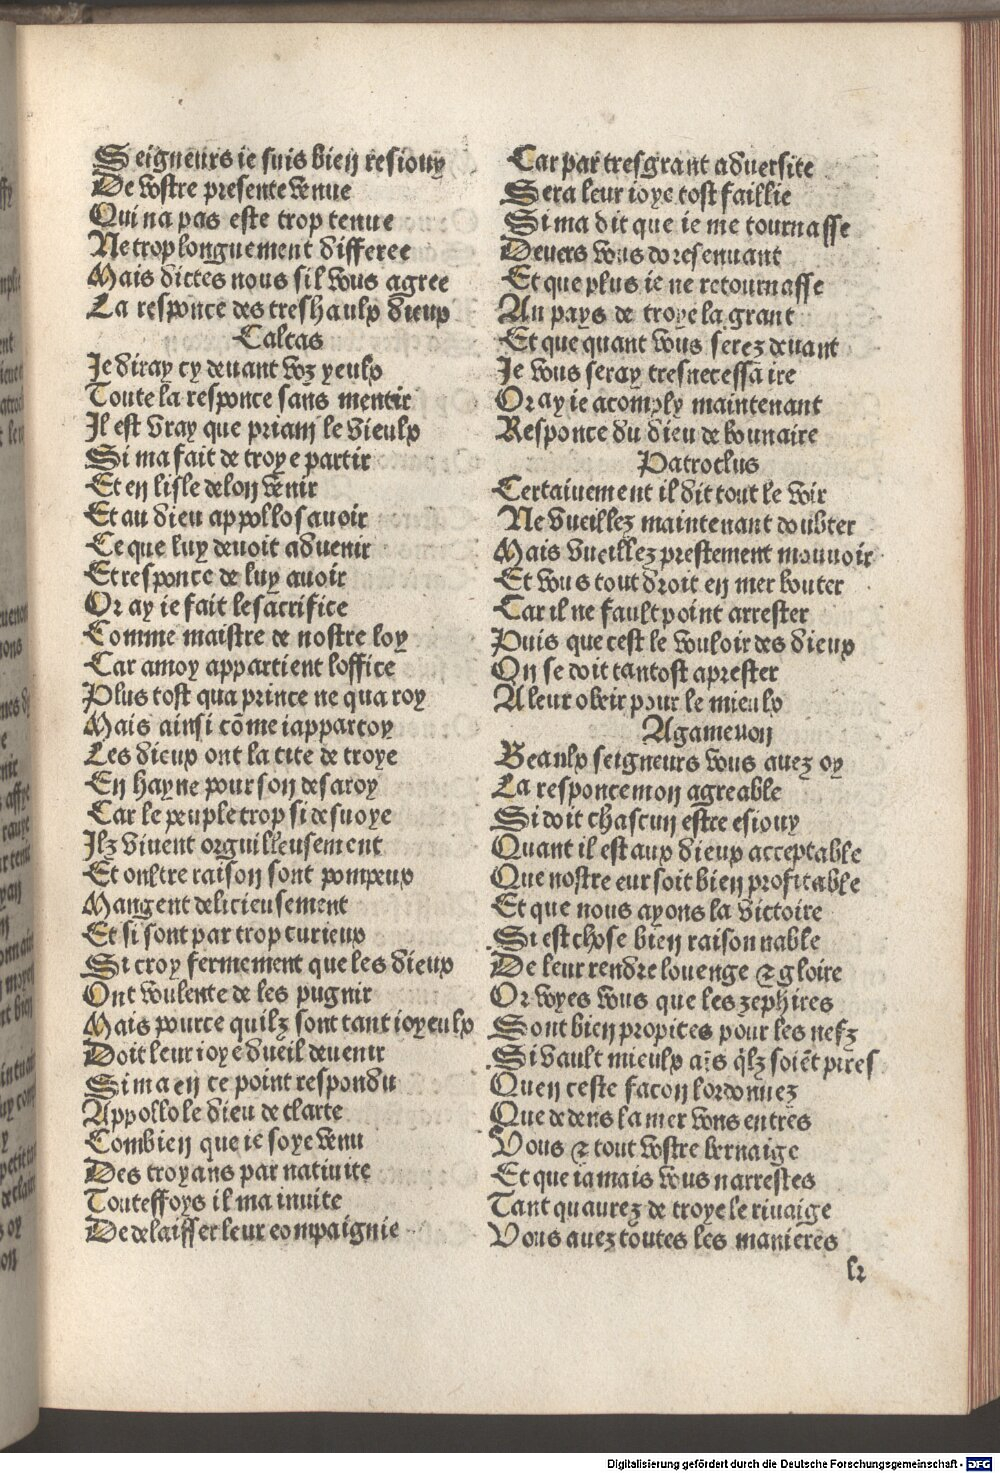 Seigneurs ie suis bien resiouy
De vostre presente venue
Qui na pas este trop tenue
Ne trop longuement differee
Mais dictes nous sil vous agree
La responce des treshaulx dieux
Calcas
Je diray cy deuant voz yeulx
Toute la responce sans mentir
Il est vray que priam le vieulx
Si ma fait de troye partir
Et en lisle delon venir
Et au dieu appollo sauoir
Ce que luy deuoit aduenir
Et responce de luy auoir
Or ay ie fait le sacrifice
Comme maistre de nostre loy
Car a moy appartient loffice
Plus tost qua prince ne qua roy
Mais ainsi cõme iappartoy
Les dieux ont la cite de troye
En hayne pour son desaroy
Car le peuple trop si desuoye
Ilz viuent orguilleusement
Et onltre raison sont pompeux
Mangent delicieusement
Et si sont par trop curieux
Si croy fermement que les dieux
Ont voulente de les pugnir
Mais pource quilz sont tant ioyeulx
Doit leur ioye dueil deuenir
Si ma en ce point respondu
Appollo le dieu de clarte
Combien que ie soye venu
Des troyans par natiuite
Touteffoys il ma inuite
De delaisser leur compaignie
Car par tresgrant aduersite
Sera leur ioye tost faillie
Si ma dit que ie me tournasse
Deuers vous doresenuant
Et que plus ie ne retournasse
Au pays de troye la grant
Et que quant vous serez deuant
Je vous seray tresnecessaire
Or ay ie acomply maintenant
Responce du dieu debounaire
Patroclus
Certainement il dit tout le voir
Ne vueillez maintenant doubter
Mais vueillez prestement mouuoir
Et vous tout droit en mer bouter
Car il ne fault point arrester
Puis que cest le vouloir des dieux
On se doit tantost aprester
A leur obeir pour le mieulx
Agamenon
Beaulx seigneurs vous auez oy
La responce mon agreable
Si doit chascun estre esiouy
Quant il est aux dieux acceptable
Que nostre eur soit bien profitable
Et que nous ayons la victoire
Si est chose bien raisonnable
De leur rendre louenge & gloire
Or voyes vous que les zephires
Sont bien propices pour les nefz
Si vault mieulx ais q̃lz soiẽt pires
Quen ceste facon lordonnez
Que dedens la mer vons entres
Vous & tout vostre bernaige
Et que iamais vous narrestes
Tant quaurez de troye le riuaige
Vous auez toutes les manieres
k2
Digitalisierung gefördert durch die Deutsche Forschungsgemeinschaft - DFG